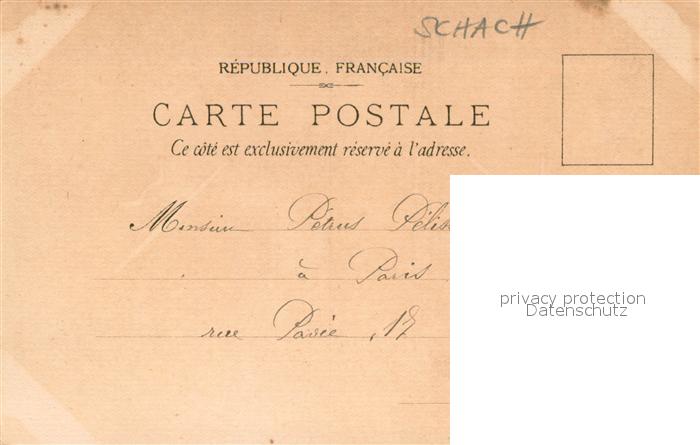 SCHACH
RÉPUBLIQUE. FRANÇAISE
CARTE POSTALE
Ce côté est exclusivement réservé à l'adresse.
Monsieur Pétrus
à Paris
rue Pavée, 17
privacy protection
Datenschutz